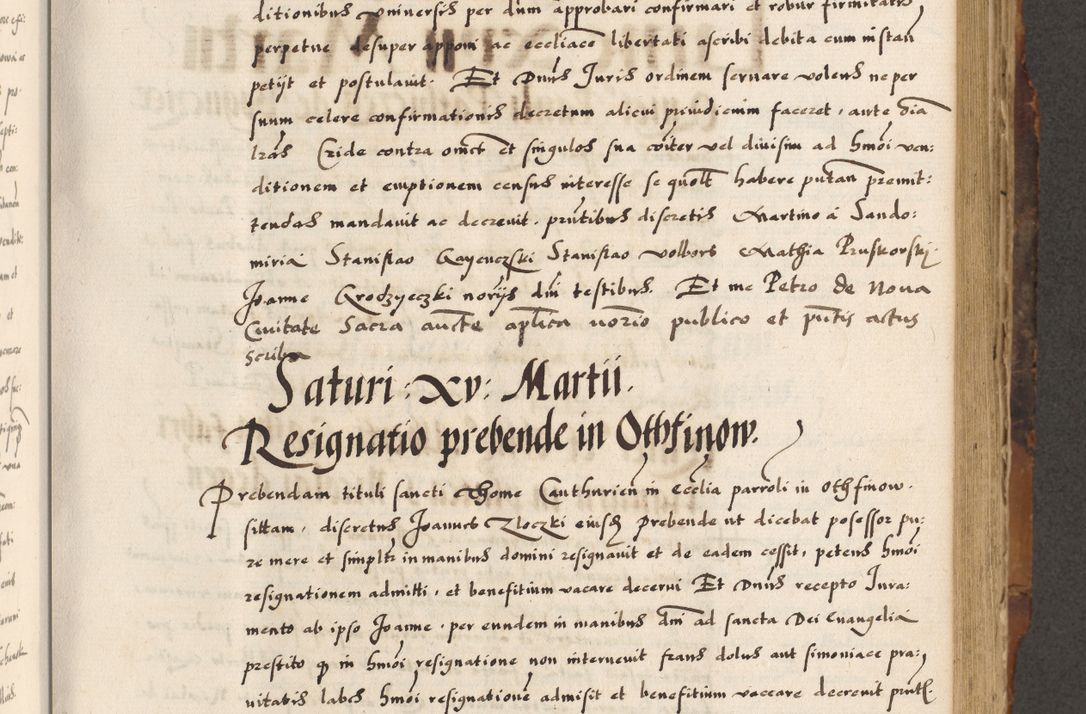 ditionibus universis per dnm approbari confirmari et robur firmitatis
perpetue desuper apponi ac eccliace libertati ascribi debita cum instan
petijt et postulavit. Et Dnus Juris ordinem servare volens ne per
suum celere confirmationis decretum alicui preiudicium faceret, ante oia
lras Cride contra omes et singulos sua coiter vel divisim ad hmoi ven:
ditionem et emptionem census interesse se quolt habere putan premit:
tendas mandavit ac decrevit. pntibus discretis Martino à Sando:
miria Stanislao Gayenczski Stanislao Volbors Mathia Pruskorski
Joanne Grodzyeczki norijs dni testibus. Et me Petro de Nova
Civitate Sacra aucte aplica norio publico et pntis actus
scriba
Saturi: Xv: Martii.
Resignatio prebende in Othfinow.
Prebendam tituli sancti Thome Canthurien in Ecclia parroli in Othfinow.
sittam, discretus Joannes Zloczki eiusq prebende ut dicebat posessor pu:
re mere et simplr in manibus domini resignavit et de eadem cessit, petens hmoi
resignationem admitti, et benefitium vacare decerni Et Dnus recepto Jura:
mento ab ipso Joanne, per eundem in manibus dni ad sancta Dei Evangelia
prestito q in hmoi resignatione non intervenit fraus dolus aut simoniace pra:
vitatis labes hmoi resignatione admisit et benefitium vaccare decrevit pntl.